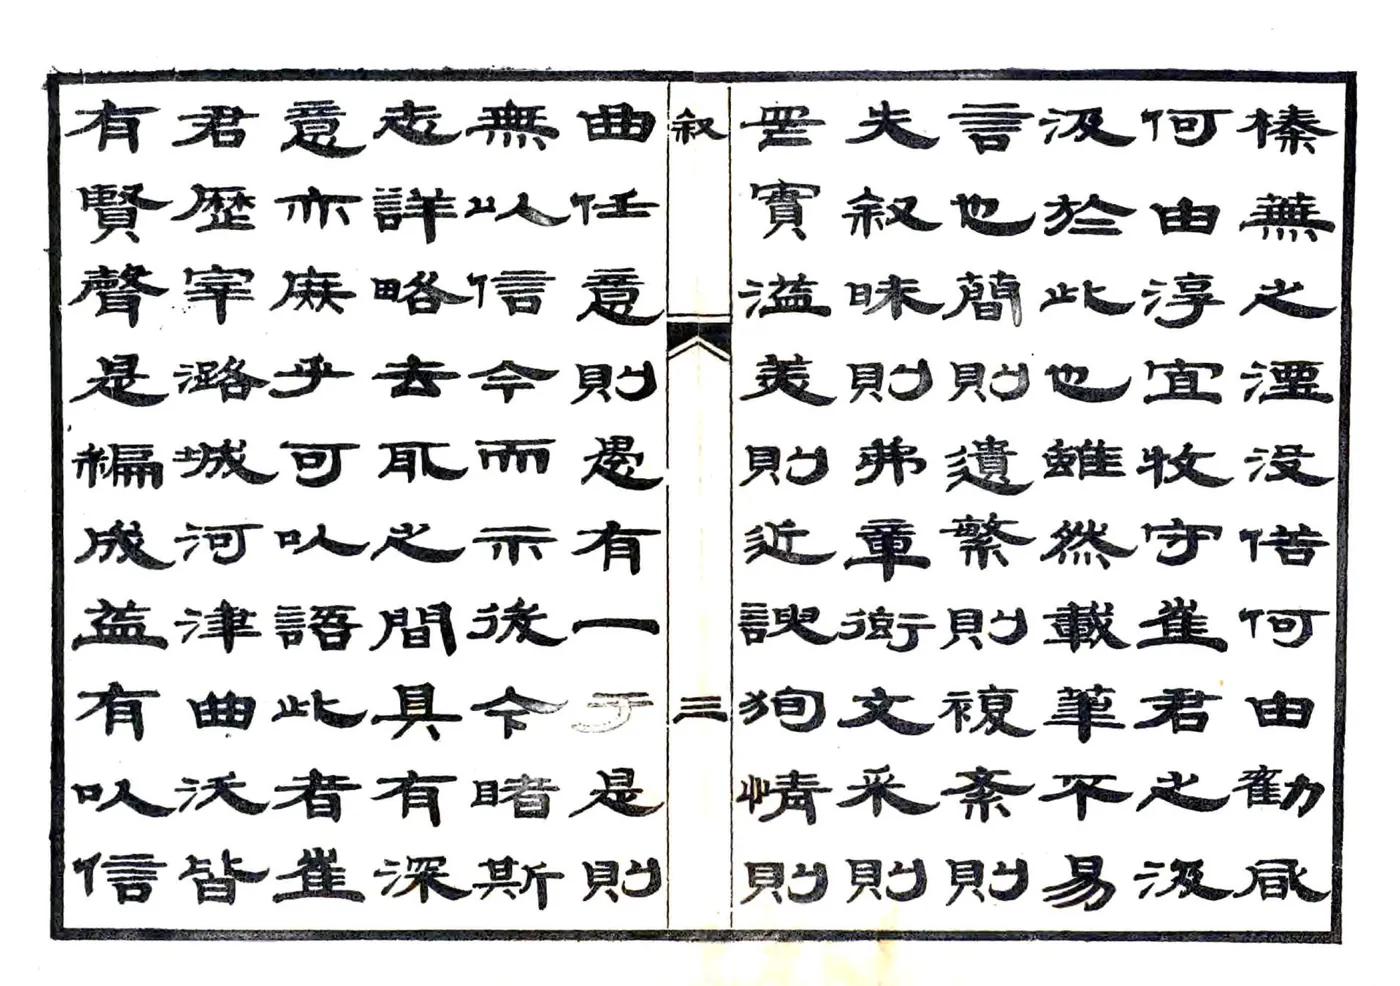 榛蕪之湮没借何由勸風
何由淳宜牧守崔君之汲
汲於此也雖然載筆不易
言也簡則遺繁則複紊則
失叙昧則弗章衒文采則
罔實溢美則近諛狥情則
叙 三
曲任意則愚有一于是則
無以信今而示後今睹斯
志詳略去取之間具有深
意亦庶乎可以語此者崔
君歷宰潞城河津曲沃皆
有賢聲是編成益有以信